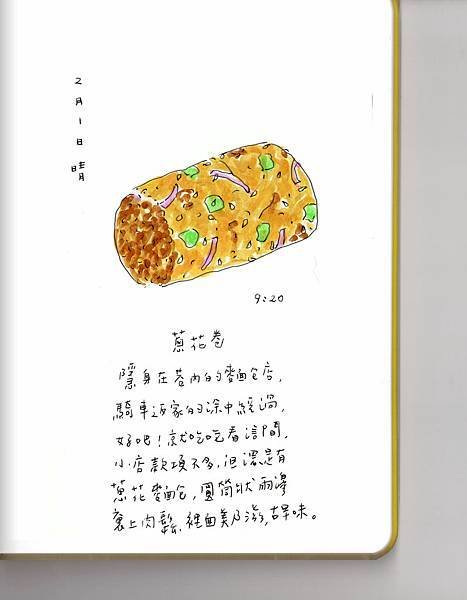 2月1日 晴
9:20
蔥花卷
隱身在巷內的麵包店,
騎車返家的途中經過,
好吧!就吃吃看這間,
小店款項不多,但還是有
蔥花麵包,圓筒狀兩邊
裹上肉鬆,裡面美乃滋,古早味。